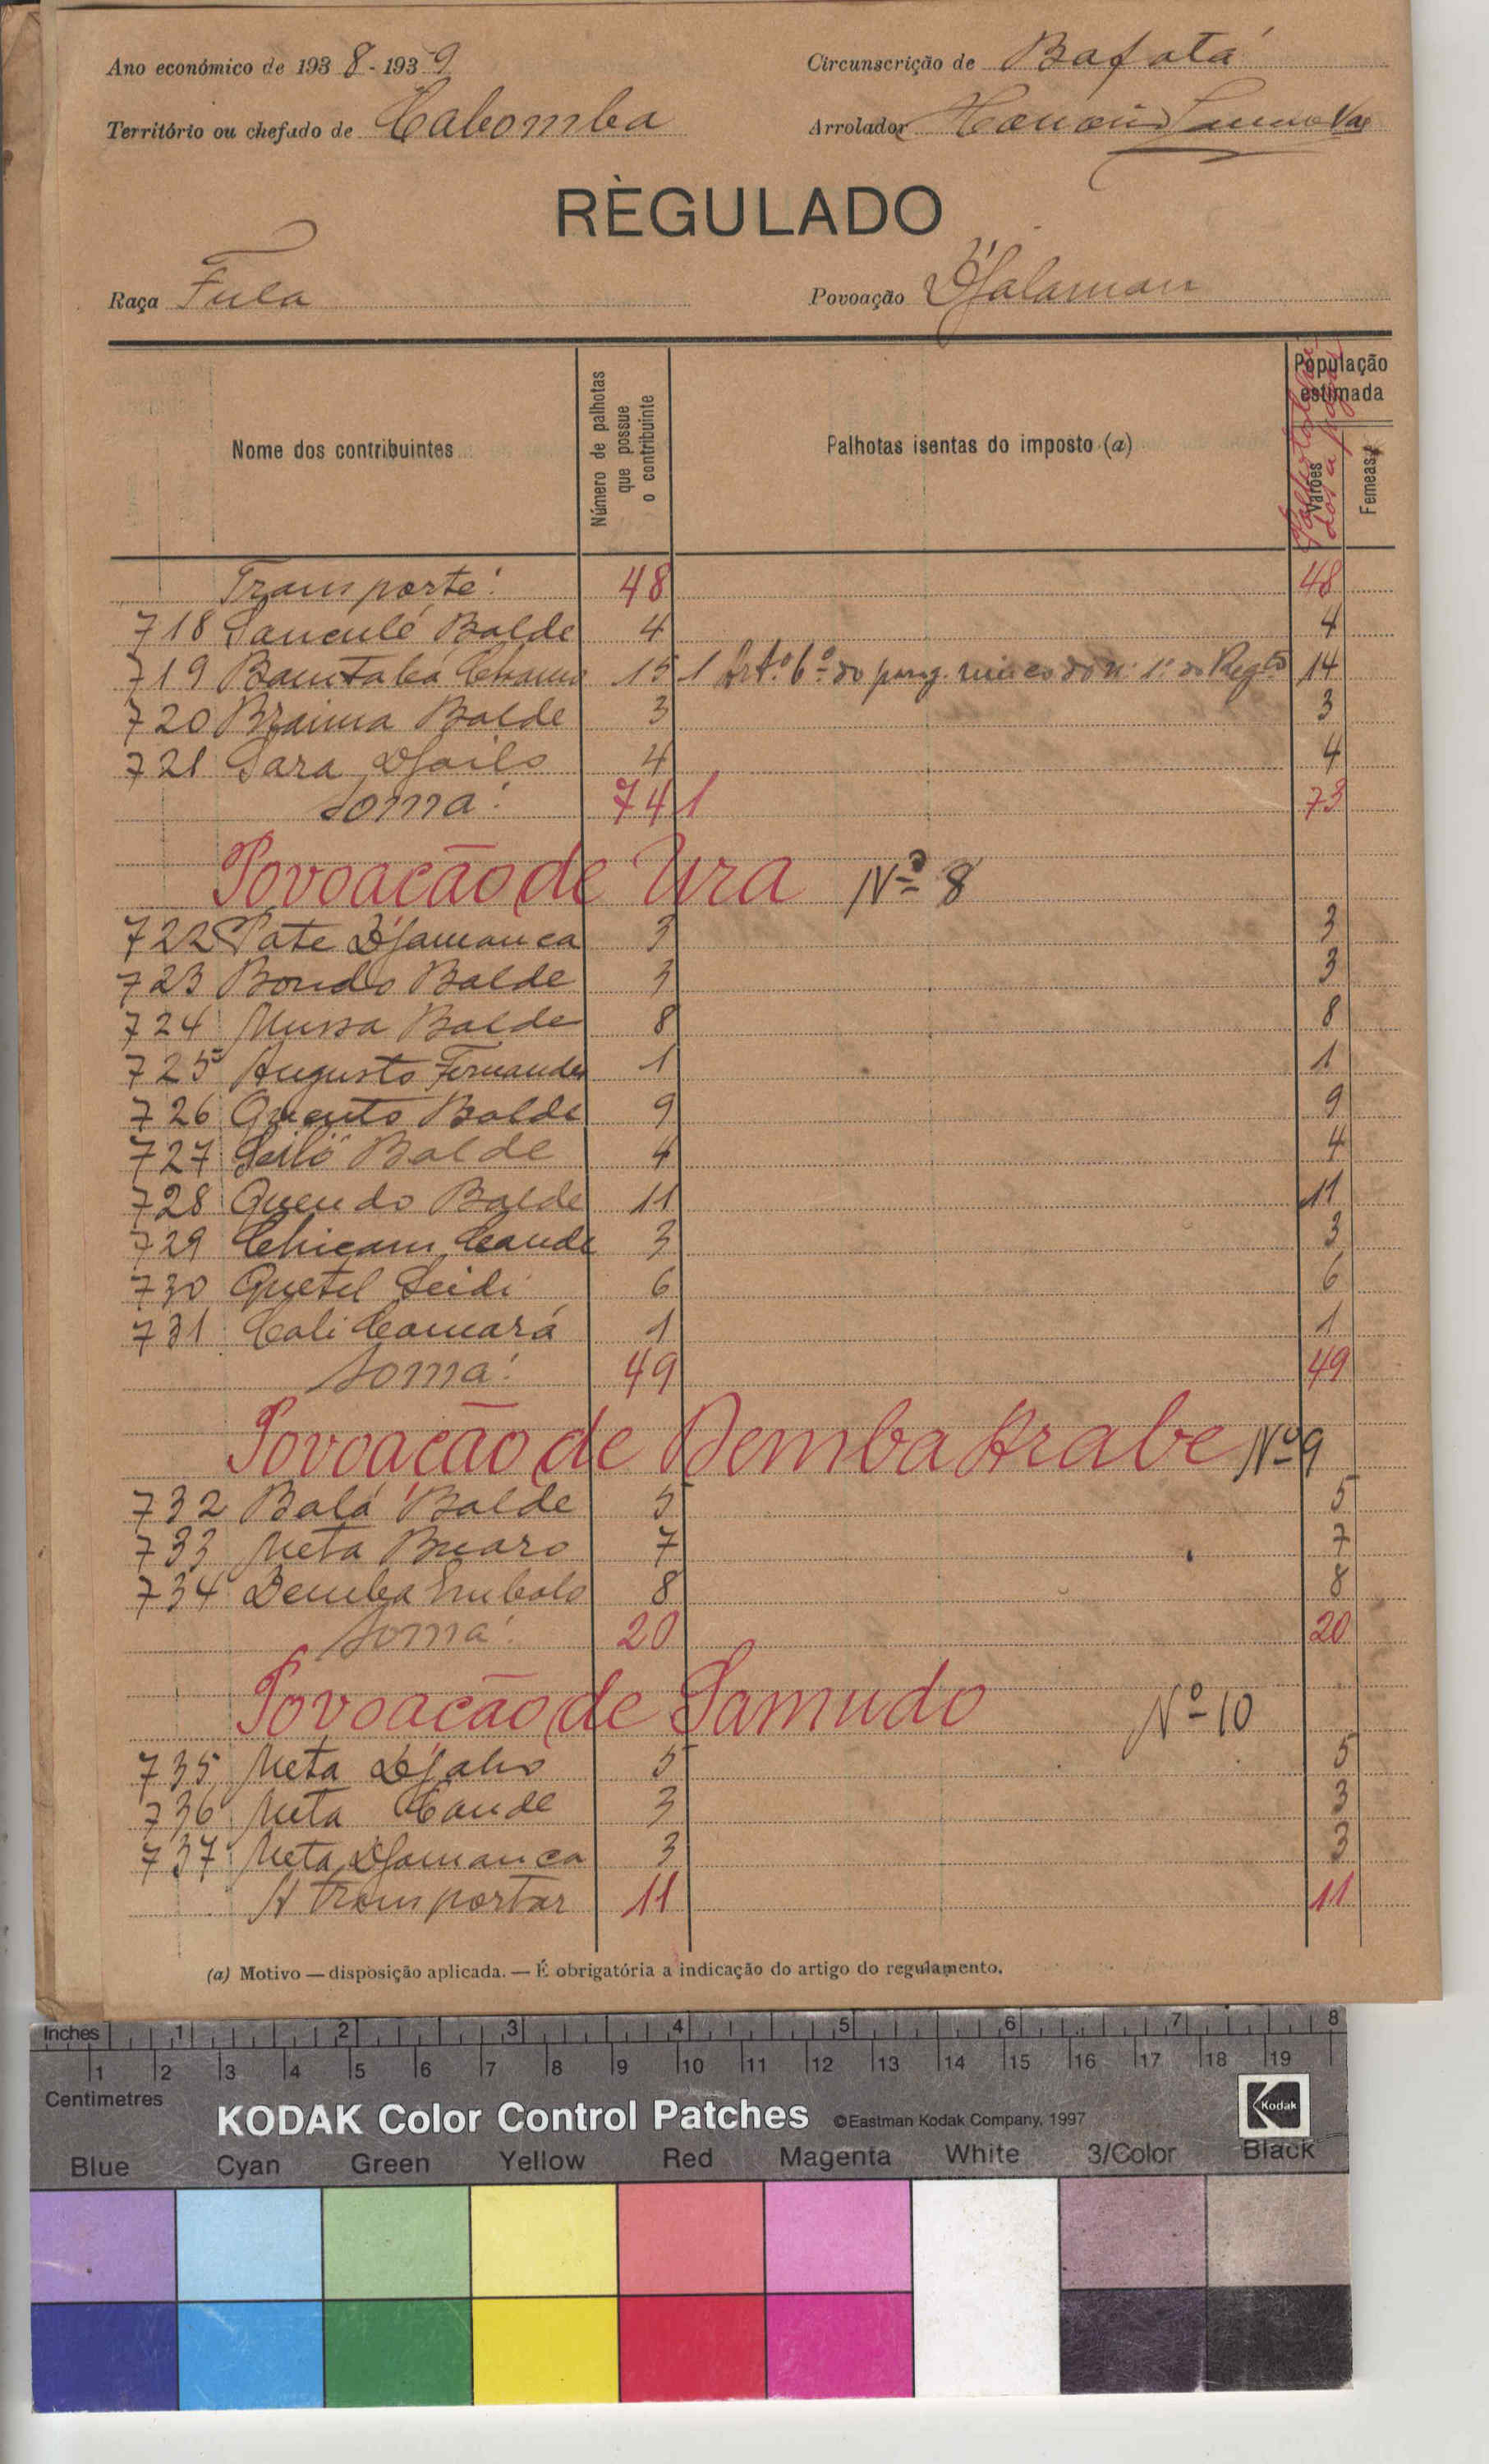 Ano económico de 1938-1939
Circunscrição de Bafatá
Território ou chefado de Cabomba
Arrolador
RÈGULADO
Raça Fula
Povoação D'jalaman
Nome dos contribuintes
Número de palhotas que possue o contribuinte
Palhotas isentas do imposto (a)
População estimada
Varões
Femeas
Transporte: 48 48
718 Sanculé Balde 4 4
719 Bantabá 15 1 Art.º 6º do 14
720 Braima Balde 3 3
721 Sara Djailo 4 4
Soma: 74 1 73
Povoação de Ura Nº 8
722 Pate D'jamanca 3 3
723 Bondo Balde 3 3
724 Mussa Balde 8 8
725 Augusto Fernandes 1 1
726 Quento Balde 9 9
727 Balde 4 4
728 Quendo Balde 11 11
729 Chicam Cande 3 3
730 Quetel Seidi 6 6
731 Cali Camará 1 1
Soma: 49 49
Povoação de Demba Arabe Nº 9
732 Balá Balde 5 5
733 Meta Buaro 7 7
734 Demba Embalo 8 8
Soma: 20 20
Povoação de Samudo Nº 10
735 Meta D'jalo 5 5
736 Meta Cande 3 3
737 Meta Djamanca 3 3
A transportar 11 11
(a) Motivo — disposição aplicada. — É obrigatória a indicação do artigo do regulamento.
Inches 1 2 3 4 5 6 7 8
1 2 3 4 5 6 7 8 9 10 11 12 13 14 15 16 17 18 19
Centimetres
KODAK Color Control Patches ©Eastman Kodak Company, 1997 Kodak
Blue Cyan Green Yellow Red Magenta White 3/Color Black